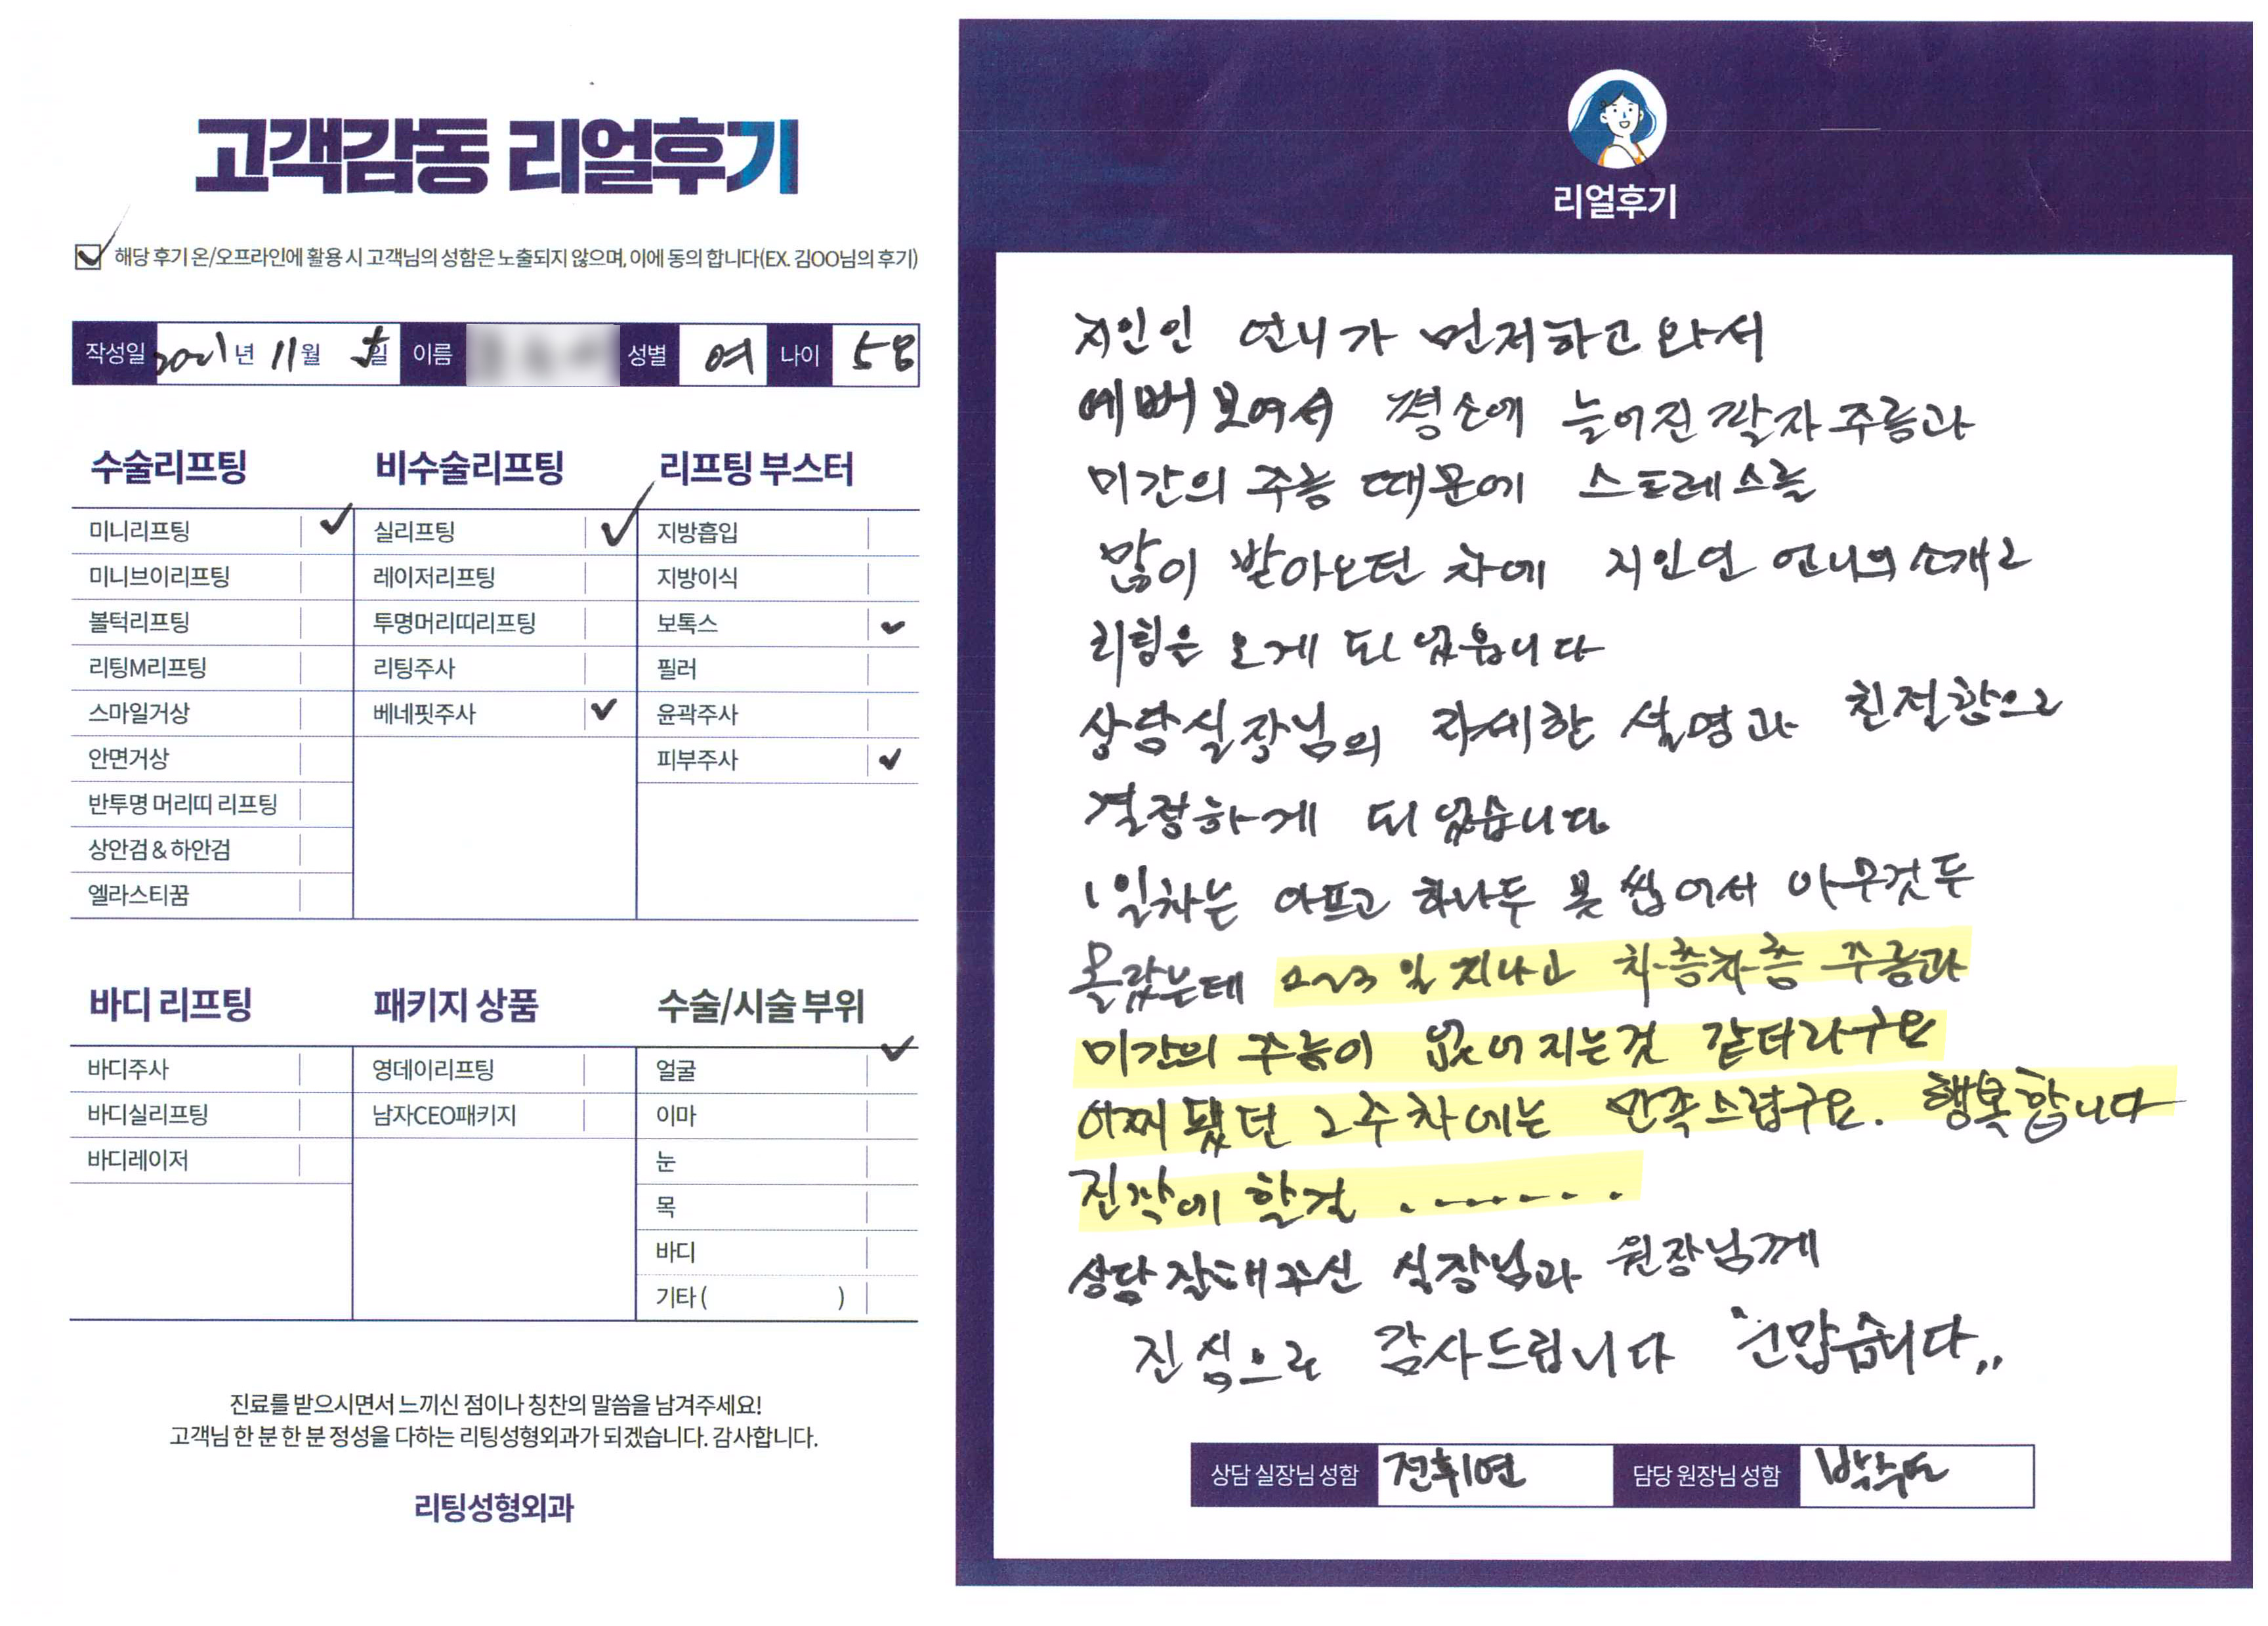 고객감동 리얼후기
해당 후기 온/오프라인에 활용 시 고객님의 성함은 노출되지 않으며, 이에 동의 합니다(EX. 김OO님의 후기)
작성일 2021년 11월 일 이름 성별 여 나이 58
수술리프팅
미니리프팅
미니브이리프팅
볼턱리프팅
리팅M리프팅
스마일거상
안면거상
반투명 머리띠 리프팅
상안검 & 하안검
엘라스티꿈
비수술리프팅
실리프팅
레이저리프팅
투명머리띠리프팅
리팅주사
베네핏주사
리프팅 부스터
지방흡입
지방이식
보톡스
필러
윤곽주사
피부주사
바디 리프팅
바디주사
바디실리프팅
바디레이저
패키지 상품
영데이리프팅
남자CEO패키지
수술/시술 부위
얼굴
이마
눈
목
바디
기타 ( )
진료를 받으시면서 느끼신 점이나 칭찬의 말씀을 남겨주세요!
고객님 한 분 한 분 정성을 다하는 리팅성형외과가 되겠습니다. 감사합니다.
리팅성형외과
리얼후기
지인인 언니가 먼저하고 와서
예뻐보여서 평소에 늘어진 팔자주름과
미간의 주름 때문에 스트레스를
많이 받아오던 차에 지인인 언니의 소개로
리팅을 오게 되었읍니다
상담실장님의 자세한 설명과 친절함으로
결정하게 되었습니다
1일차는 아프고 하나두 못 씹어서 아무것두
몰랐는데 2~3일 지나고 차츰차츰 주름과
미간의 주름이 없어지는것 같더라구요
어찌됐던 2주차에는 만족스럽구요. 행복합니다
진작에 할걸 ........
상담 잘해주신 실장님과 원장님께
진심으로 감사드립니다 고맙습니다,,
상담 실장님 성함 전휘연 담당 원장님 성함